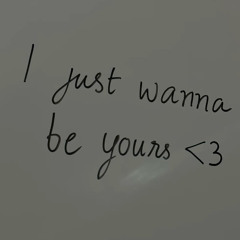 I just wanna
be yours <3